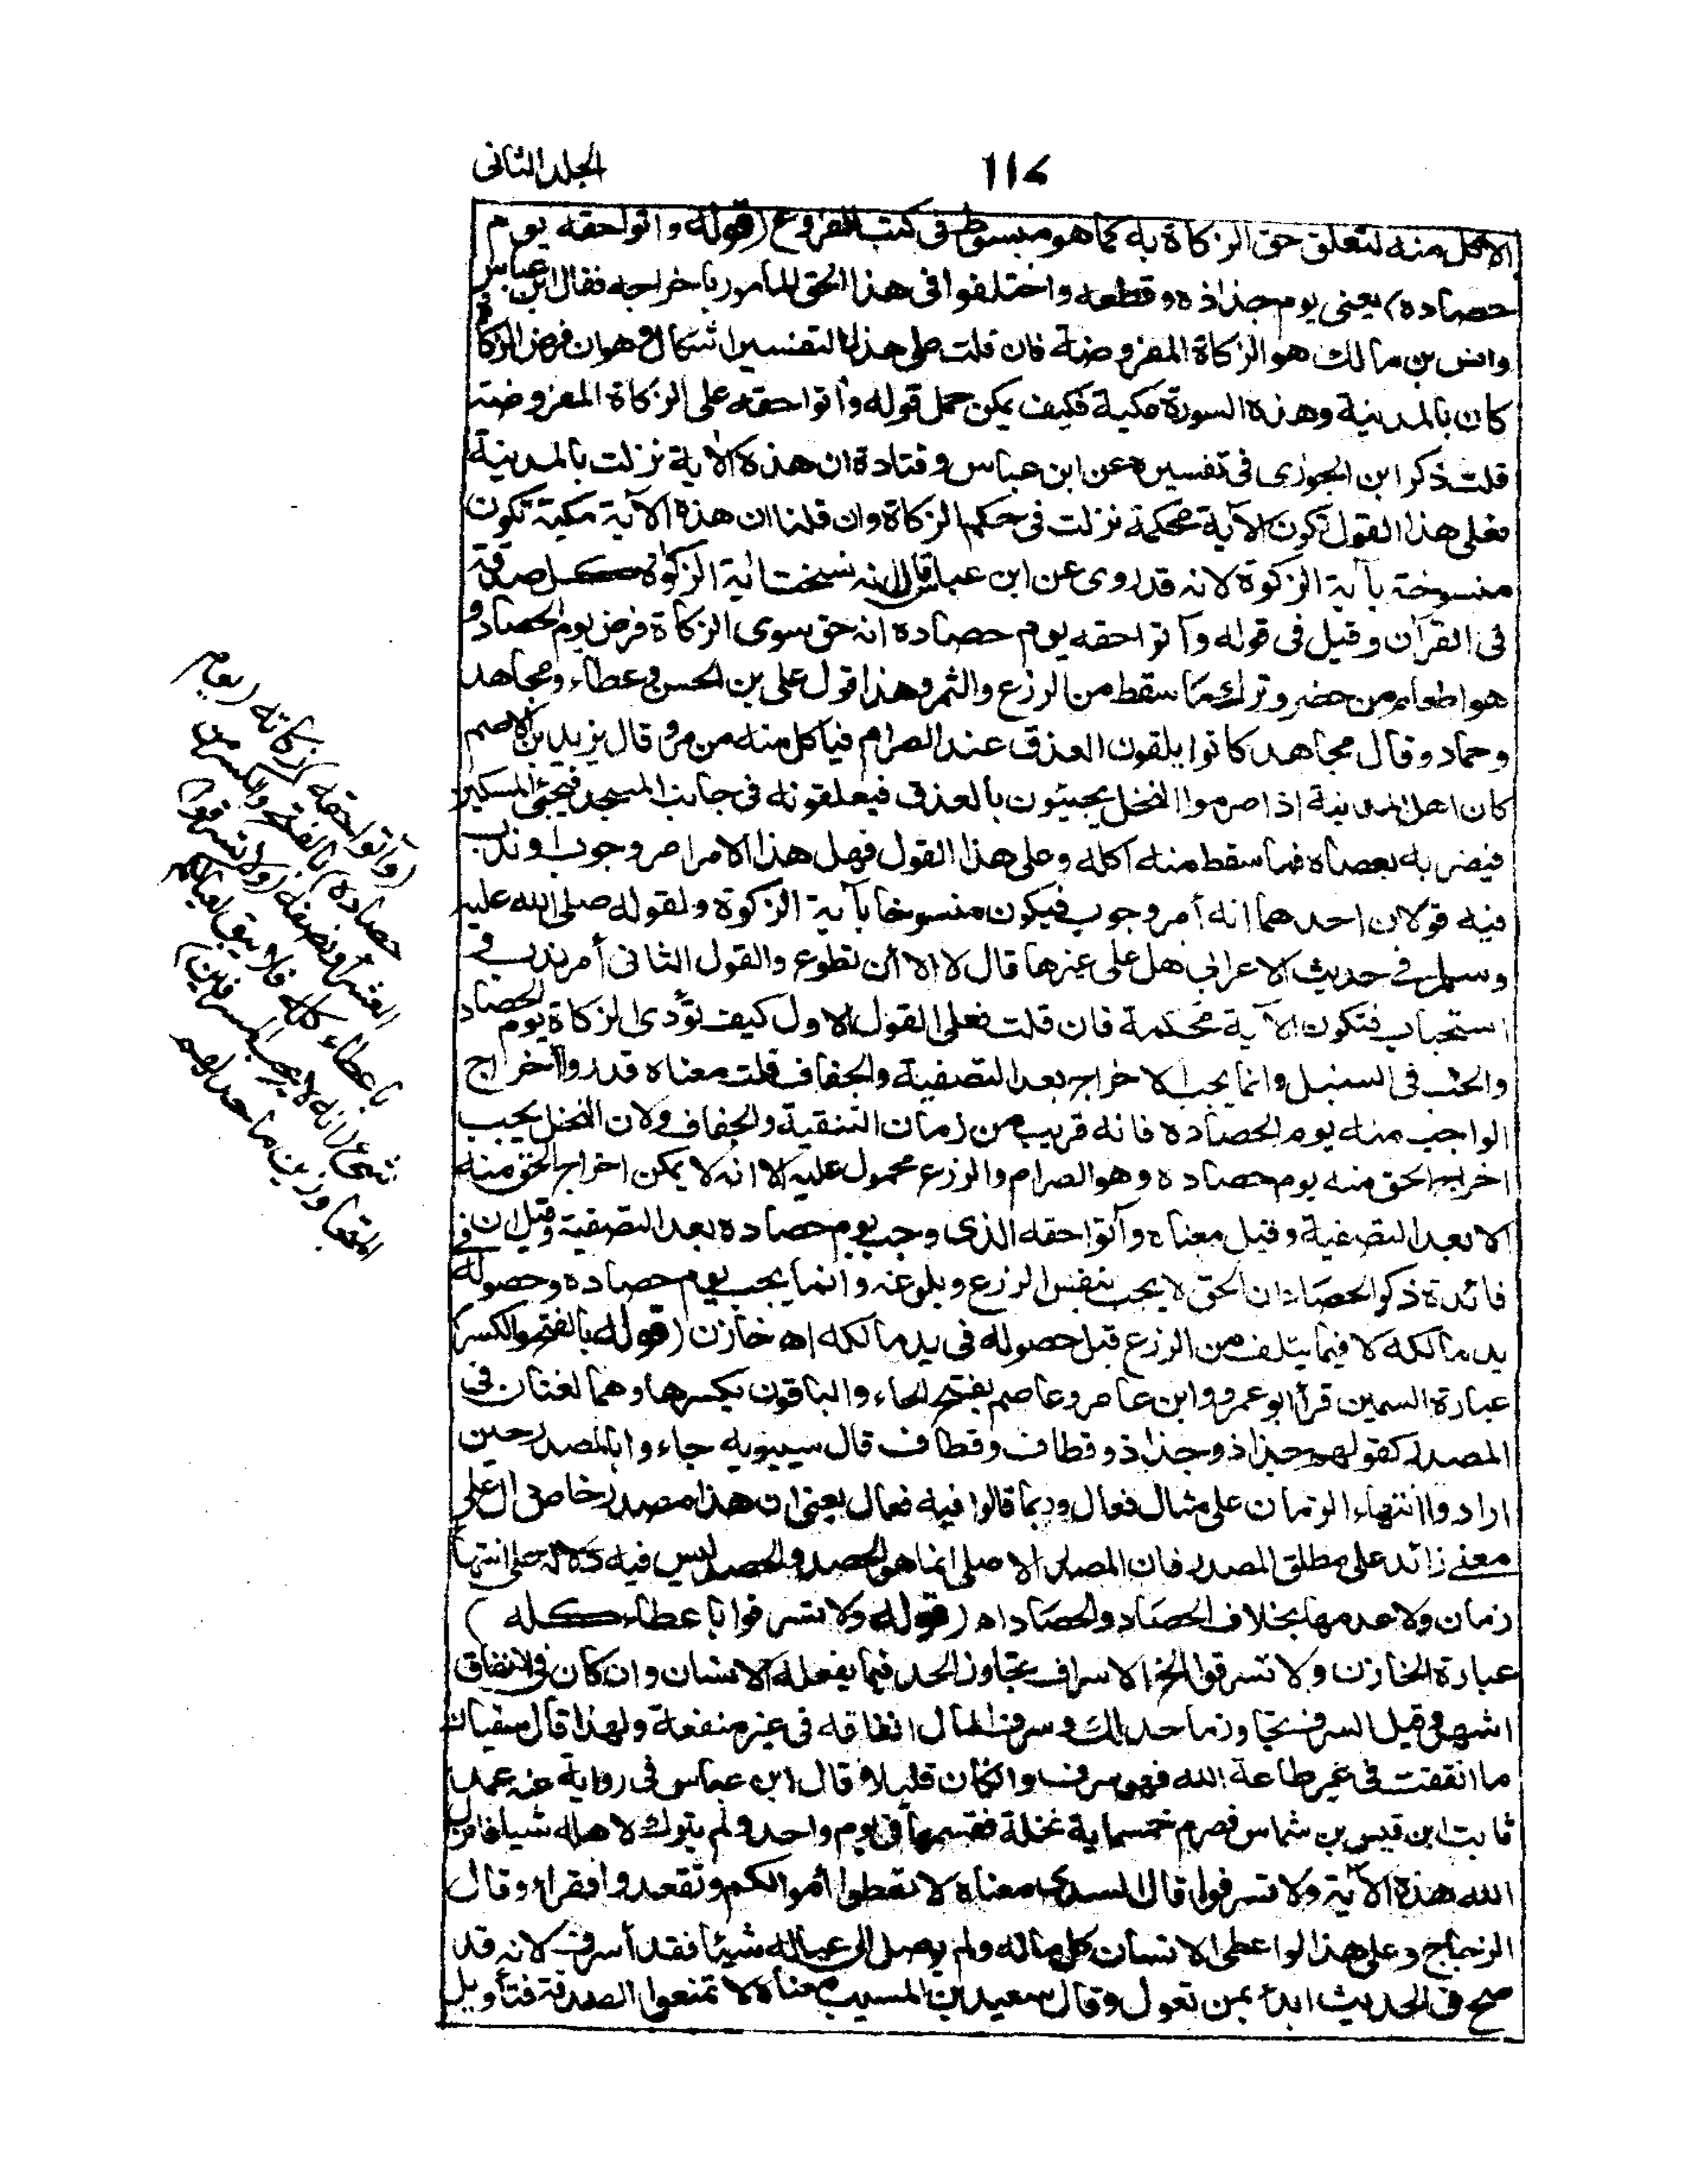 الجلد الثانى
١١٤
الاكل منه لتعلق حق الزكاة به كما هو مبسوط فى كتب الفروع (قوله واتوا حقه يوم
حصاده) يعنى يوم جذاذه وقطعه واختلفوا فى هذا الحق المأمور باخراجه فقال ابن عباس
وانس بن مالك هو الزكاة المفروضة فان قلت على هذا التفسير اشكال وهو ان فرض الزكاة
كان بالمدينة وهذه السورة مكية فكيف يمكن حمل قوله وأتوا حقه على الزكاة المفروضة
قلت ذكر ابن الجوزى فى تفسيره عن ابن عباس وقتادة ان هذه الآية نزلت بالمدينة
فعلى هذا القول تكون الآية محكمة نزلت فى حكم الزكاة وان قلنا ان هذه الآية مكية تكون
منسوخة بآية الزكوة لانه قد روى عن ابن عباس قال انه نسخت آية الزكوة كل صدقة
فى القرآن وقيل فى قوله وآتوا حقه يوم حصاده انه حق سوى الزكاة فرض يوم الحصاد و
هو اطعام من حضر وترك ما سقط من الزرع والثمر وهذا قول على بن الحسن وعطاء ومجاهد
وحماد وقال مجاهد كانوا يلقون العذق عند الصرام فياكل منه من مر وقال يزيد بن الاصم
كان اهل المدينة اذا صرموا النخل يجيئون بالعذق فيعلقونه فى جانب المسجد فيجئ المسكين
فيضربه بعصاه فما سقط منه اكله وعلى هذا القول فهل هذا الامر امر وجوب او ندب
فيه قولان احدهما انه أمر وجوب فيكون منسوخا بآية الزكوة ولقوله صلى الله عليه
وسلم فى حديث الاعرابى هل على غيرها قال لا الا أن تطوع والقول الثانى أمر ندب و
استحباب فتكون الآية محكمة فان قلت فعلى القول الاول كيف تؤدى الزكاة يوم الحصاد
والحب فى السنبل وانما يجب الاخراج بعد التصفية والجفاف قلت معناه قدروا اخراج
الواجب منه يوم الحصاده فانه قريب من زمان التنقية والجفاف ولان النخل يجب
اخراج الحق منه يوم حصاده وهو الصرام والزرع محمول عليه الا انه لا يمكن اخراج الحق منه
الا بعد التصفية وقيل معناه وآتوا حقه الذى وجب يوم حصاده بعد التصفية وقيل ان فى
فائدة ذكر الحصاد ان الحق لا يجب بنفس الزرع وبلوغه وانما يجب يوم حصاده وحصوله
يد مالكه لا فيما يتلف من الزرع قبل حصوله فى يد مالكه اه خازن (قوله بالفتح والكسر)
عبارة السمين قرأ ابو عمرو وابن عامر وعاصم بفتح الحاء والباقون بكسرها وهما لغتان فى
المصدر كقولهم جذاذ وجذاذ وقطاف وقطاف قال سيبويه جاءوا بالمصدر حين
ارادوا انتهاء الزمان على مثال فعال وربما قالوا فيه فعال يعنى ان هذا مصدر خاص دال على
معنى زائد على مطلق المصدر فان المصدر الاصلى انما هو الحصد والحصد ليس فيه دلالة على انتهاء
زمان ولا عدمها بخلاف الحصاد والحصاد اه (قوله ولا تسرفوا باعطاء كله)
عبارة الخازن ولا تسرفوا الخ الاسراف تجاوز الحد فيما يفعله الانسان وان كان فى الانفاق
اشهر وقيل السرف تجاوز ما حد لك وسرف المال انفاقه فى غير منفعة ولهذا قال سفيان
ما انفقت فى غير طاعة الله فهو سرف وان كان قليلا وقال ابن عباس فى رواية عنه عمد
ثابت ابن قيس بن شماس فصرم خمسماية نخلة فقسمها فى يوم واحد ولم يترك لاهله شيئا فانزل
الله هذه الآية ولا تسرفوا قال السدى معناه لا تعطوا أموالكم وتقعدوا فقراء وقال
الزجاج وعلى هذا لو اعطى الانسان كل ماله ولم يوصل الى عياله شيئا فقد أسرف لانه قد
صح فى الحديث ابدأ بمن تعول وقال سعيد بن المسيب معناه لا تمنعوا الصدقة فتأويل
(وآتوا حقه) زكاته (يوم
حصاده) بالفتح والكسر من
العشر او نصفه (ولا تسرفوا)
باعطاء كله فلا يبقى لعيالكم
شئ (انه لا يحب المسرفين)
المتجاوزين ما حد لهم